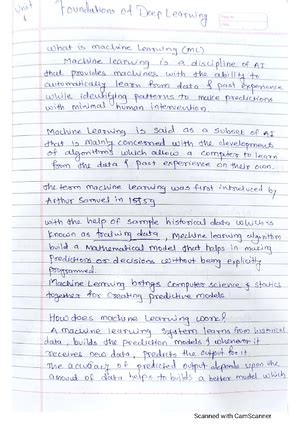 Unit 1
Foundations of Deep Learning
what is machine Learning (ML)
Machine learning is a discipline of AI
that provides machines with the ability to
automatically learn from data & past experience
while identifying patterns to make predictions
with minimal human intervention.
Machine Learning is said as a subset of AI
that is mainly concerned with the development
of algorithms which allow a computer to learn
from the data & past experience on their own.
The term machine learning was first introduced by
Arthur Samuel in 1959
with the help of sample historical data which is
known as training data, Machine learning algorithm
build a Mathematical model that helps in making
predictions or decisions without being explicitly
programmed.
Machine Learning brings computer science & statics
together for creating predictive models
How does machine Learning work?
A machine learning system learns from historical
data, builds the prediction models & whenever it
receives new data, predicts the output for it
The accuracy of predicted output depends upon the
amount of data helps to builds a better model which
Scanned with CamScanner